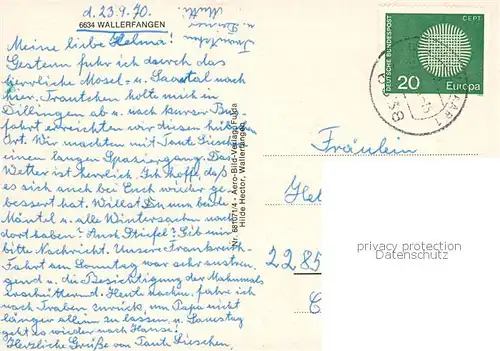 d. 23.9.70.
6634 WALLERFANGEN
Meine liebe Helma!
Gestern fuhr ich durch das
herrliche Mosel- u. Saartal nach
hier. Trautchen holte mich in
Dillingen ab u. nach kurzer Bus-
fahrt erreichten wir diesen hübschen
Ort. Wir machten mit Tante Lieschen
einen langen Spaziergang. Das
Wetter ist herrlich. Ich hoffe, daß
es sich auch bei Euch wieder ge-
bessert hat. Willst Du nun beide
Mäntel u. alle Wintersachen nach
dort haben? Auch Stiefel? Gib mir
bitte Nachricht. Unsere Frankreich-
Fahrt am Sonntag war sehr anstren-
gend u. die Besichtigung der Mahnmals
erschütternd. Heute nachm. fahre ich
nach Traben zurück, um Papa nicht
länger allein zu lassen, u. Samstag
geht es wieder nach Hause!
Herzliche Grüße von Tante Lieschen,
Trautchen
u. Deiner
Mutti.
Nr. 681071/4 - Aero-Bild-Verlag, Fulda
Hilde Hector, Wallerfangen
DEUTSCHE BUNDESPOST
CEPT
20
Europa
Fräulein
2285
privacy protection
Datenschutz